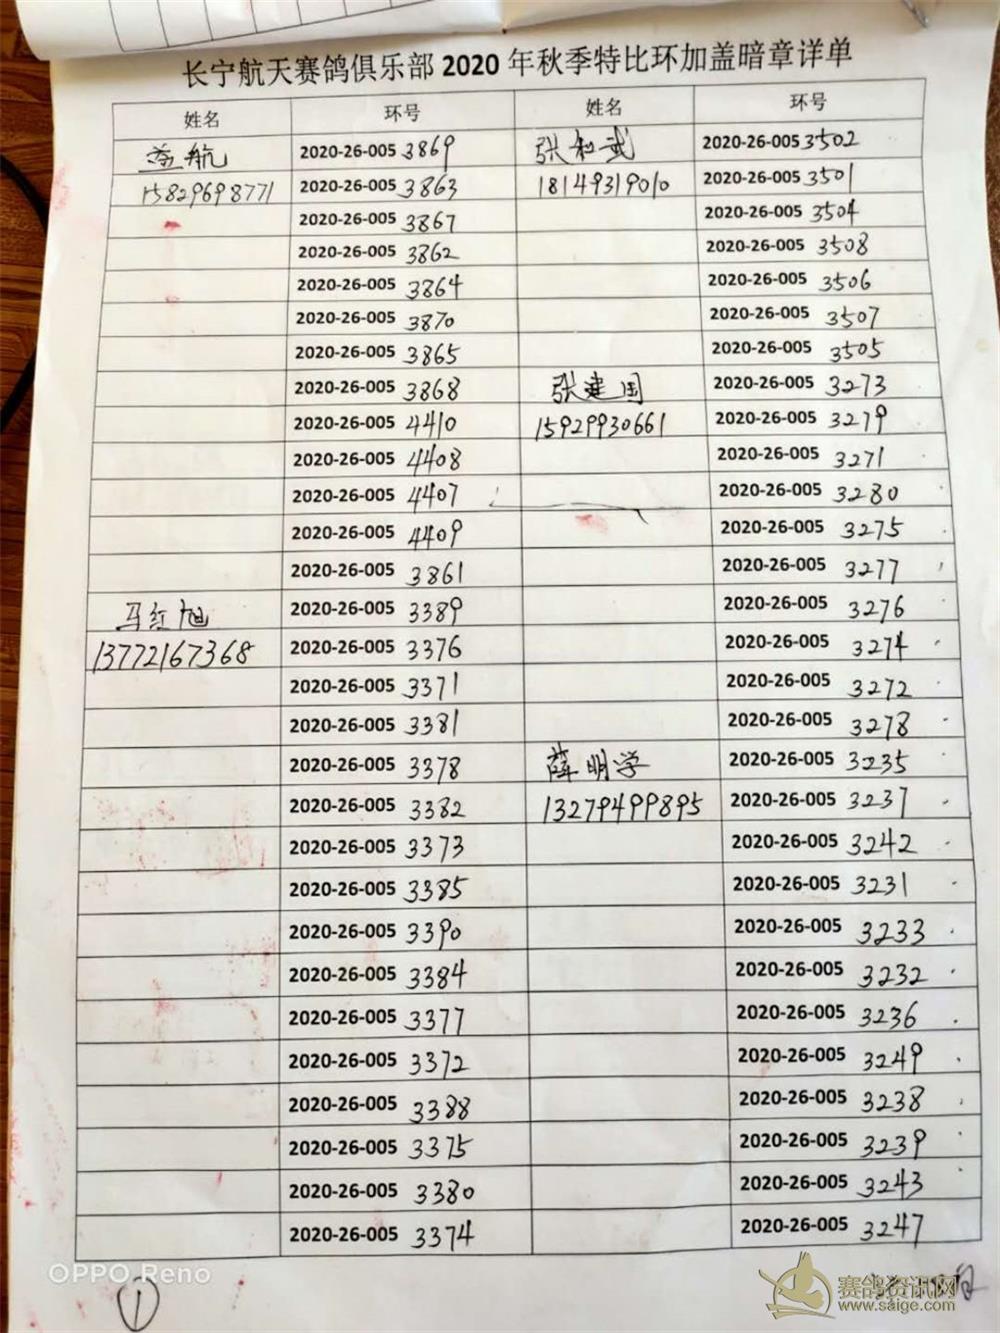 长宁航天赛鸽俱乐部2020年秋季特比环加盖暗章详单
姓名 环号 姓名 环号
航 2020-26-005 3869 张和武 2020-26-005 3502
15829698771 2020-26-005 3863 18149319010 2020-26-005 3501
2020-26-005 3867 2020-26-005 3504
2020-26-005 3862 2020-26-005 3508
2020-26-005 3864 2020-26-005 3506
2020-26-005 3870 2020-26-005 3507
2020-26-005 3865 2020-26-005 3505
2020-26-005 3868 张建国 2020-26-005 3273
2020-26-005 4410 15929930661 2020-26-005 3279
2020-26-005 4408 2020-26-005 3271
2020-26-005 4407 2020-26-005 3280
2020-26-005 4409 2020-26-005 3275
2020-26-005 3861 2020-26-005 3277
马红旭 2020-26-005 3389 2020-26-005 3276
13772167368 2020-26-005 3376 2020-26-005 3274
2020-26-005 3371 2020-26-005 3272
2020-26-005 3381 2020-26-005 3278
2020-26-005 3378 薛明学 2020-26-005 3235
2020-26-005 3382 13279499895 2020-26-005 3237
2020-26-005 3373 2020-26-005 3242
2020-26-005 3385 2020-26-005 3231
2020-26-005 3390 2020-26-005 3233
2020-26-005 3384 2020-26-005 3232
2020-26-005 3377 2020-26-005 3236
2020-26-005 3372 2020-26-005 3249
2020-26-005 3388 2020-26-005 3238
2020-26-005 3375 2020-26-005 3239
2020-26-005 3380 2020-26-005 3243
2020-26-005 3374 2020-26-005 3247
OPPO Reno
①
赛鸽资讯网
www.saige.com